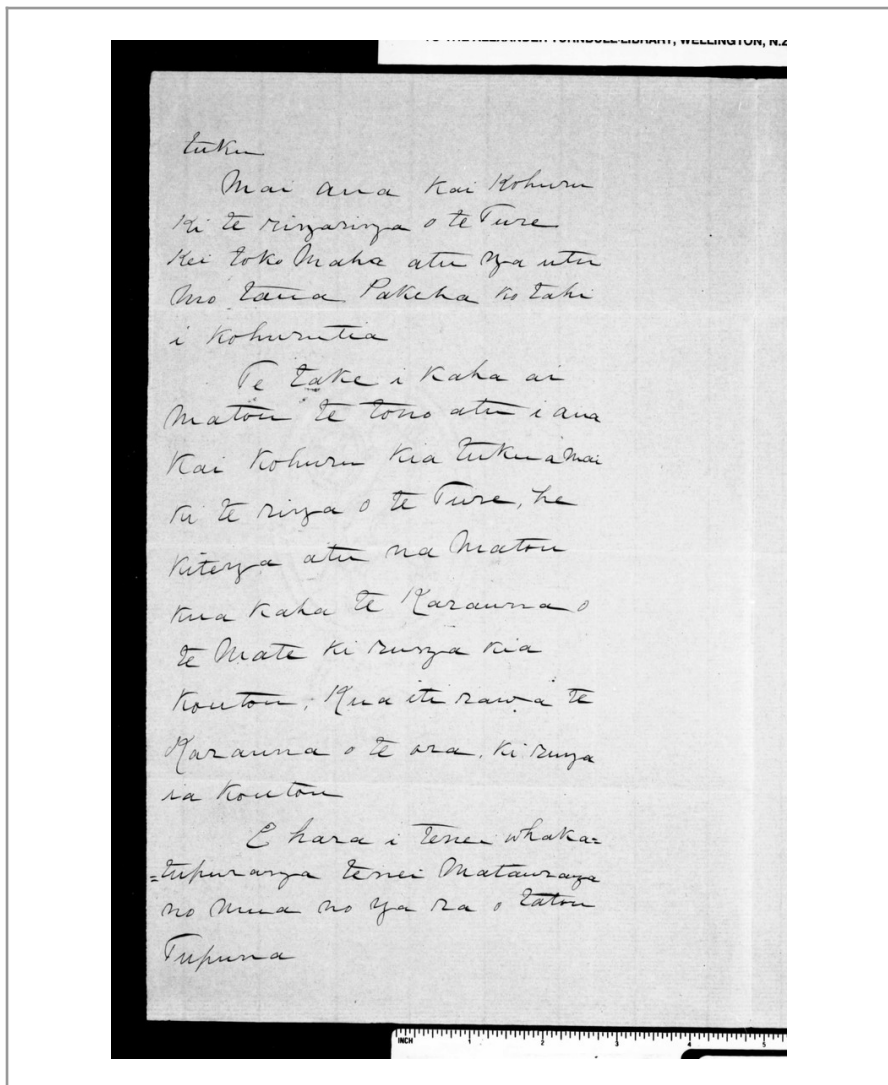 TO THE ALEXANDER TURNBULL LIBRARY, WELLINGTON, N.Z
tuku
Mai ana Kai Kohuru
Ki te ringaringa o te Ture
Kei toko Maha atu nga utu
Mo tana Pakeha ko tahi
i Kohurutia
Te take i Kaha ai
Matou te tono atu i ana
Kai Kohuru kia tukua Mai
ki te ringa o te Ture, he
kitenga atu na Matou
kua kaha te Karauna o
te Mate ki runga kia
Koutou, Kua iti rawa te
Karauna o te ora, ki runga
ia Koutou
E hara i tenei whaka=
=tupuranga tenei Matauranga
no mua no nga ra o tatou
Tupuna
INCH 1 2 3 4 5